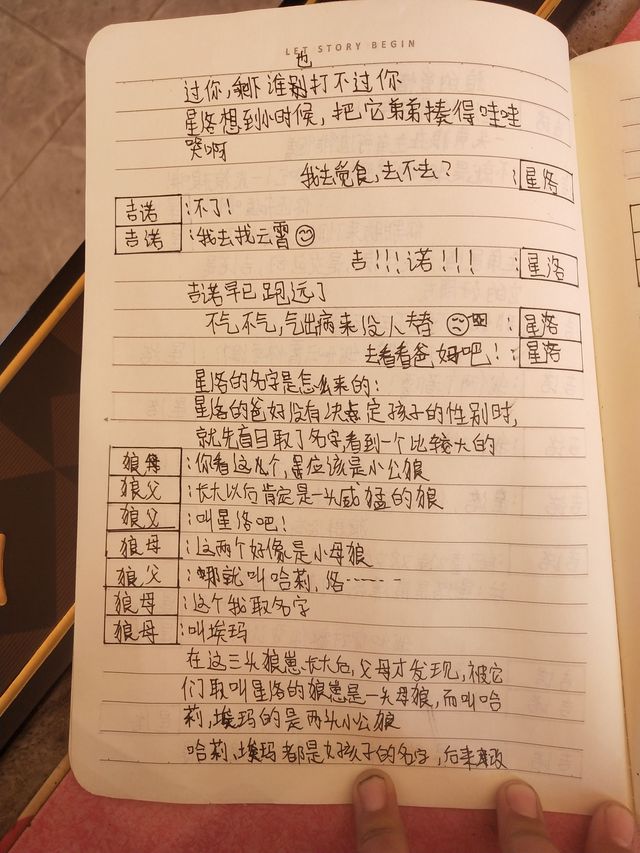 LET STORY BEGIN
也
过你,剩下谁别打不过你
星洛想到小时候,把它弟弟揍得哇哇
哭啊
我去觉食,去不去? :星洛
吉诺 :不了!
吉诺 :我去找云霄😊
吉!!!诺!!! :星洛
吉诺早已跑远了
不气不气,气出病来没人替 :星洛
去看看爸妈吧! :星洛
星洛的名字是怎么来的:
星洛的爸妈没有决定孩子的性别时,
就先盲目取了名字,看到一个比较大的
狼母 :你看这几个,应该是小公狼
狼父 :长大以后肯定是一头威猛的狼
狼父 :叫星洛吧!
狼母 :这两个好像是小母狼
狼父 :那就叫哈莉,洛------
狼母 :这个我取名字
狼母 :叫埃玛
在这三头狼崽长大后,父母才发现,被它
们取叫星洛的狼崽是一头母狼,而叫哈
莉,埃玛的是两头小公狼
哈莉,埃玛都是女孩子的名字,后来改